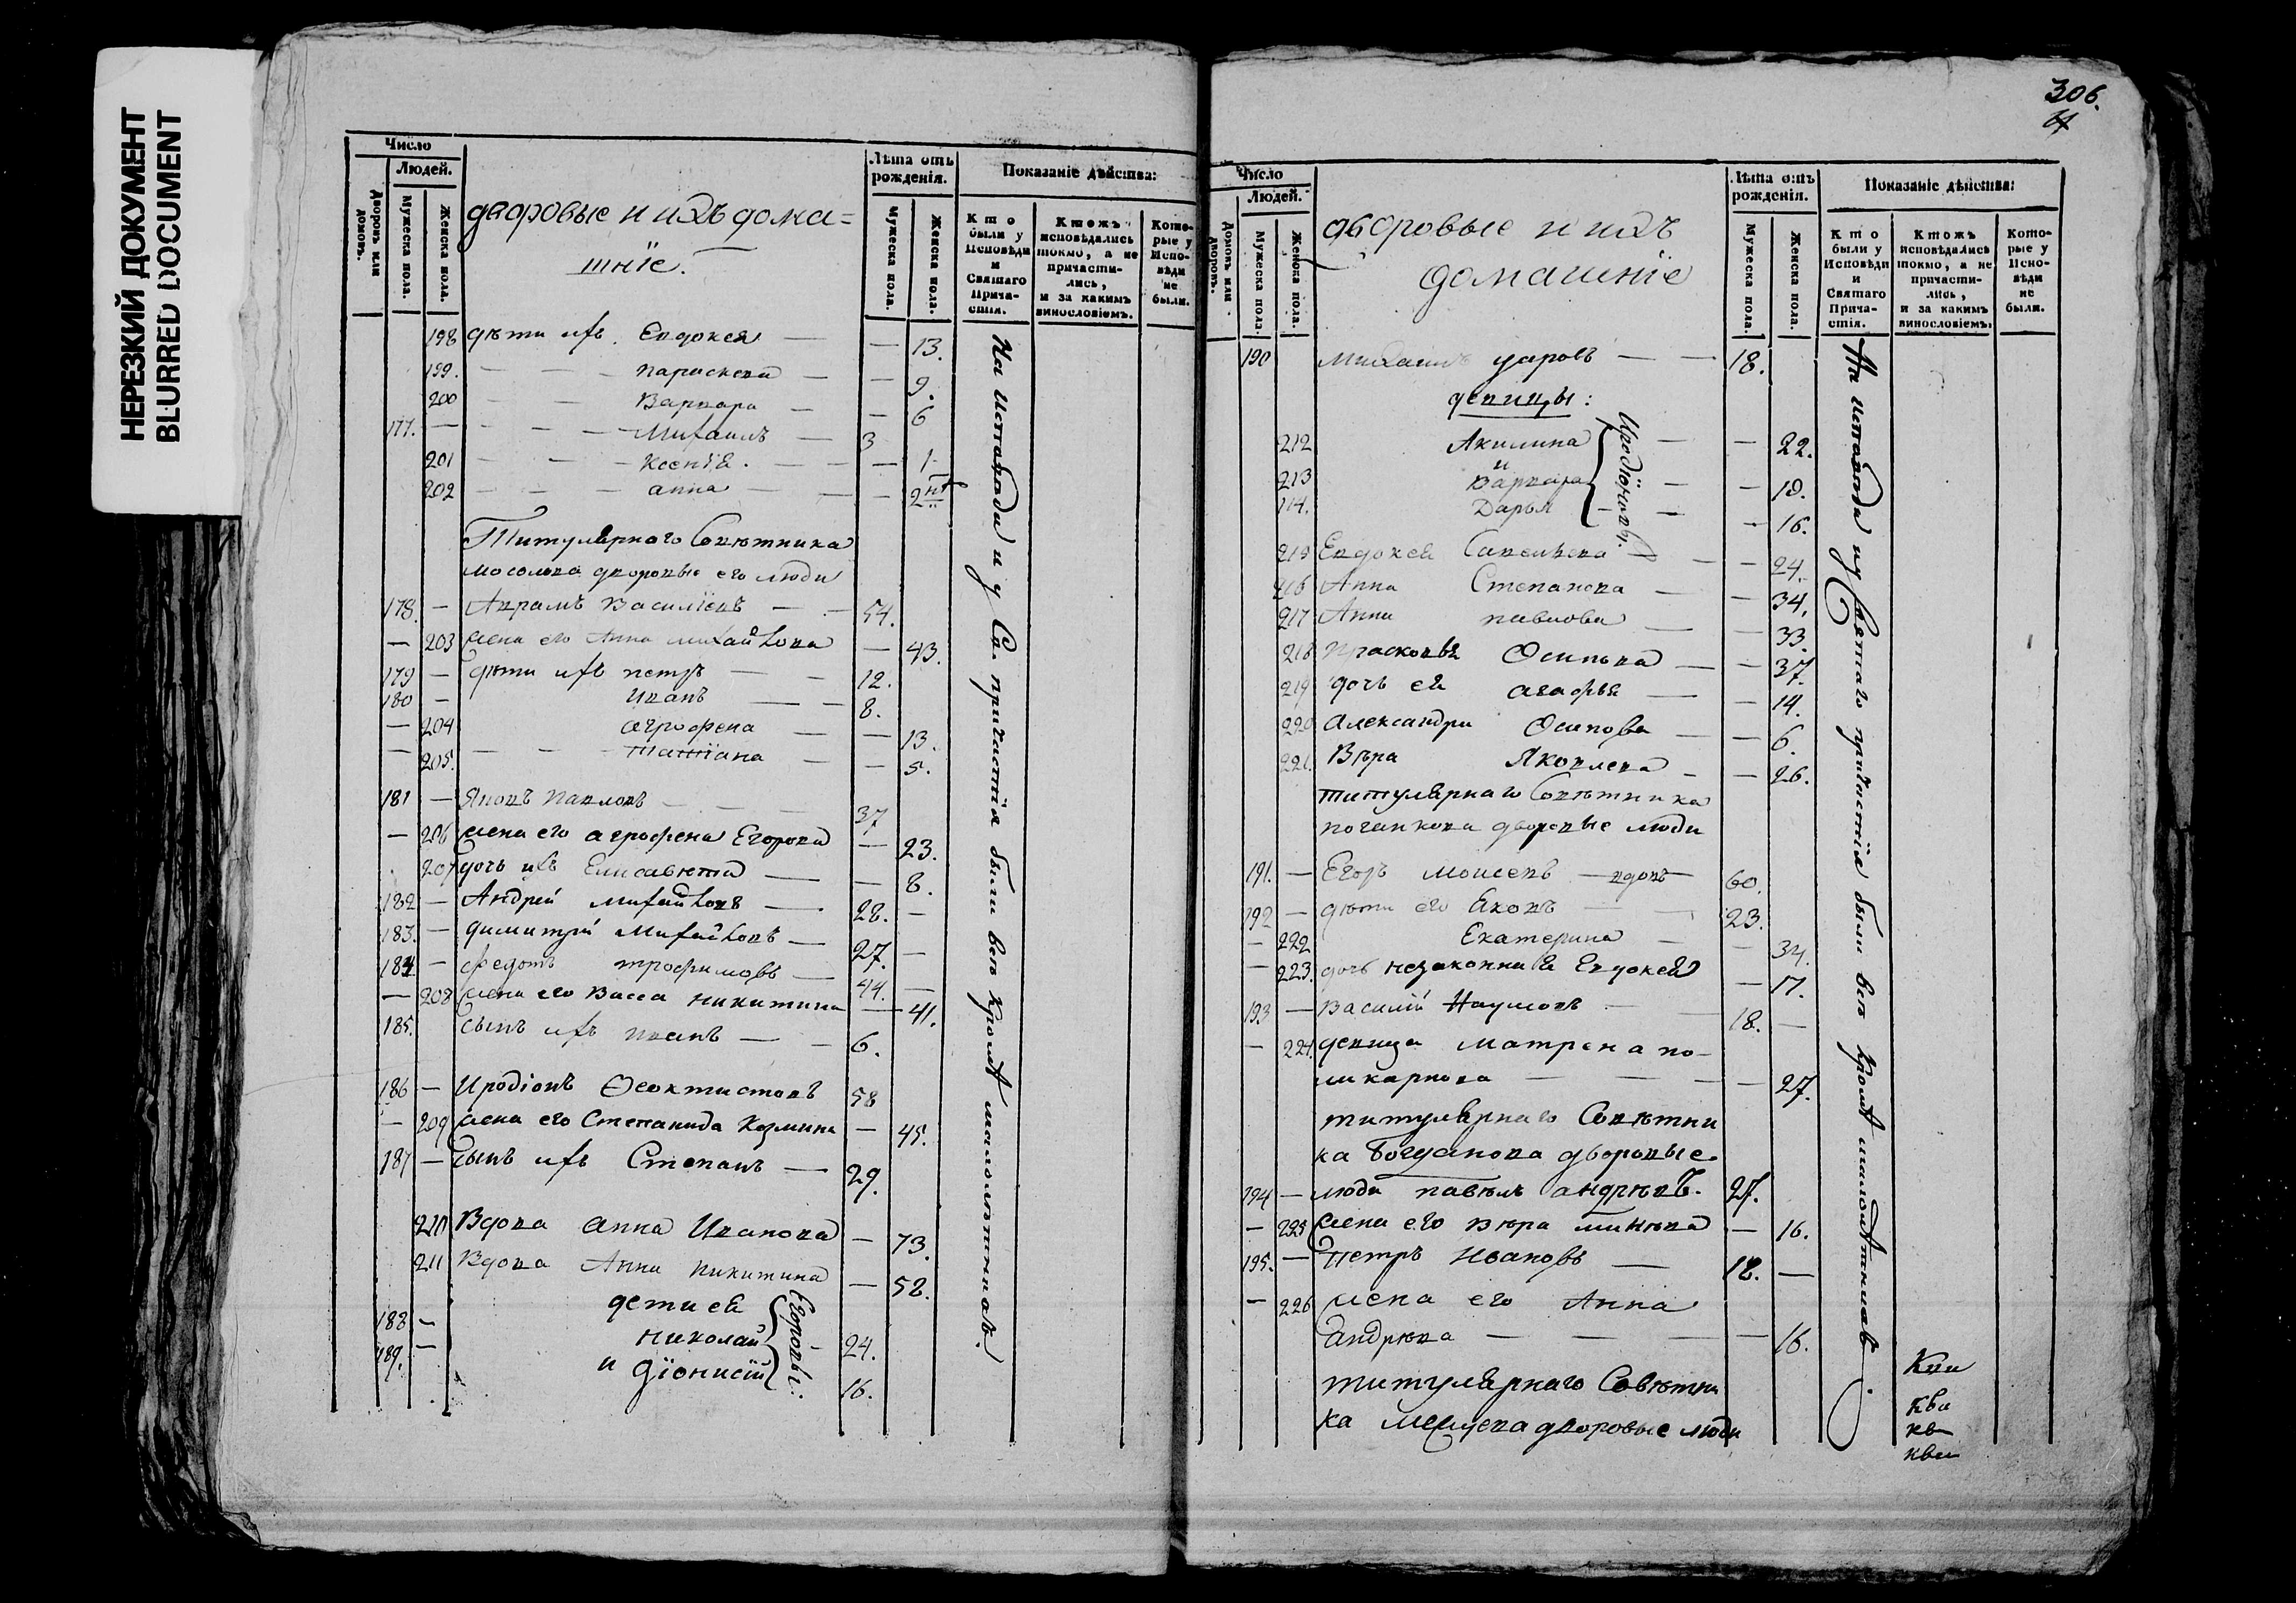 НЕРЕЗКИЙ ДОКУМЕНТ
BLURRED DOCUMENT
Число
Людей.
Дворовъ или домовъ.
Мужеска пола.
Женска пола.
дворовые и ихъ дома=
шніе.
Лѣта отъ рожденія.
Мужеска пола.
Женска пола.
Показаніе дѣйства:
Кто были у Исповѣди и Святаго Прича-стія.
Ктожъ исповѣдались токмо, а не причасти-лись, и за какимъ винословіемъ.
Кото-рые у Испо-вѣди не были.
198 дѣти ихъ Евдокея — — 13.
199. — — — параскева — — 9.
200 — — Варвара — — 6
177. — — — — Михаилъ — 3
201 — — — Ксенія. — — — 1
202 — — — анна — — — 2
Титулярнаго Совѣтника
мосолова дворовые его люди
178. — Аврамъ Василіевъ — — 54.
— 203 жена его Анна михайлова — 43.
179 — дѣти ихъ петръ — — 12.
180 — иванъ — — 8.
— 204 агрофена — — 13.
— 205. — — — татіана — — 5.
181 — Яковъ павловъ — — — 37
— 206 жена его агрофена Егорова — 23.
207 дочь ихъ Елисавета — — 8.
182 — Андрей михайловъ — 28. —
183. — димитрій михайловъ — 27. —
184 — федотъ трофимовъ — 44. —
— 208 жена его васса никитина — 41.
185. сынъ ихъ иванъ — — 6.
186 — Иродіонъ Ѳеоктистовъ 58
— 209 жена его Степанида Козмина — 45.
187 — сынъ ихъ Степанъ — 29.
210 Вдова анна Иванова — 73.
211 Вдова Анна никитина — 52.
дети ея
188 — николай — 24.
189. — и діонисій 16.
Егоровы:
На исповѣди и у Св. причастія были всѣ кромѣ малолѣтнихъ.
306.
Число
Людей.
Домовъ или дворовъ.
Мужеска пола.
Женска пола.
дворовые и ихъ
домашніе
Лѣта отъ рожденія.
Мужеска пола.
Женска пола.
Показаніе дѣйства:
Кто были у Исповѣди и Святаго Прича-стія.
Ктожъ исповѣдались токмо, а не причасти-лись, и за какимъ винословіемъ.
Кото-рые у Испо-вѣди не были.
190 михаилъ уаровъ — — 18.
девицы:
212 Акилина — — 22.
и
213 Варвара — — 19.
114. Дарья — — — 16.
Иродіоновы.
215 Евдокея Савельева — — — 24.
216 Анна Степанова — — 34.
217 Анна павлова — — 33.
218 прасковья Осипова — — 37.
219 дочь ея агафья — — 14.
220 александра Осипова — — 6.
221. Вѣра Яковлева — — 26.
титулярнаго Совѣтника
поганкова дворовые люди
191. — Егоръ моисеевъ — вдовъ — 60.
192 — дѣти его Яковъ — — 23.
— 222 Екатерина — — 34.
— 223. дочь незаконная Евдокея — 17.
193 — василій Наумовъ — — 18. —
— 224. девица матрена по-
ликарпова — — — — 27.
титулярнаго Совѣтни
ка Богданова дворовые
194 — люди павелъ андрѣевъ. 27.
— 225 жена его вѣра минѣева — 16.
195. — петръ Ивановъ — 18. —
— 226 жена его Анна
андрѣева — — — — 16.
титулярнаго Совѣтни
ка дворовые люди
На исповѣди и у святаго причастія были всѣ кромѣ малолѣтнихъ.